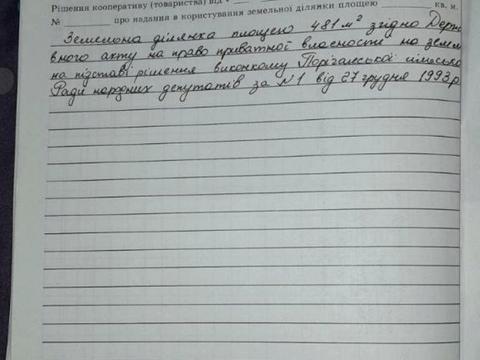 Рішення кооперативу (товариства) від «
кв. м.
№ про надання в користування земельної ділянки площею
Земельна ділянка площею 481 м² згідно Держ
вного акту на право приватної власності на земл
на підставі рішення виконкому сільсько
Ради народних депутатів за №1 від 27 грудня 1993 р